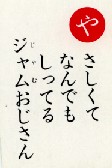 や
さしくて
なんでも
しってる
ジャムおじさん
じゃむ